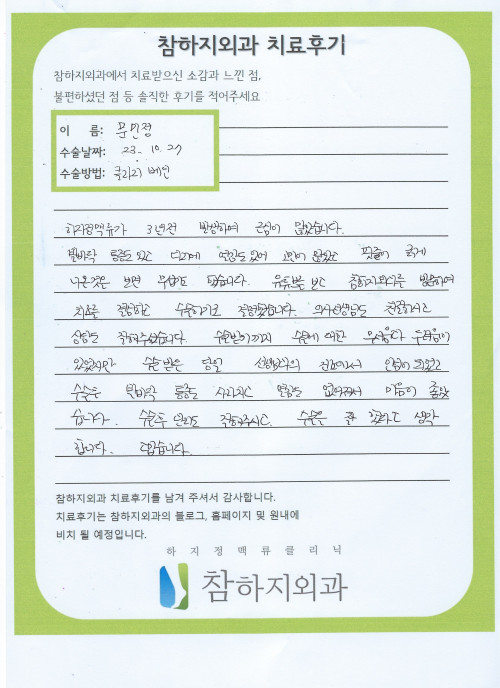 참하지외과 치료후기
참하지외과에서 치료받으신 소감과 느낀 점,
불편하셨던 점 등 솔직한 후기를 적어주세요
이 름: 문민정
수술날짜: 23. 10. 27
수술방법: 클라리베인
하지정맥류가 3년전 발생하여 고심이 많았습니다.
발바닥 통증도 있고 다리에 열감도 있어 고민이 많았고 핏줄이 굵게
나온것을 보면 무섭기도 했습니다. 유튜브를 보고 참하지외과를 방문하여
치료를 결정하고 수술하기로 결정했습니다. 의사선생님도 친절하시고
상담도 잘해주셨습니다. 수술받기까지 수술에 대한 두려움이
있었지만 수술 받은 당일 선생님의 안심이 되었고
수술후 발바닥 통증도 사라지고 열감도 없어져서 마음이 좋았
습니다. 수술후 관리도 잘해주시고. 수술은 잘 했다고 생각
합니다. 고맙습니다.
참하지외과 치료후기를 남겨 주셔서 감사합니다.
치료후기는 참하지외과의 블로그, 홈페이지 및 원내에
비치 될 예정입니다.
하지정맥류클리닉
참하지외과